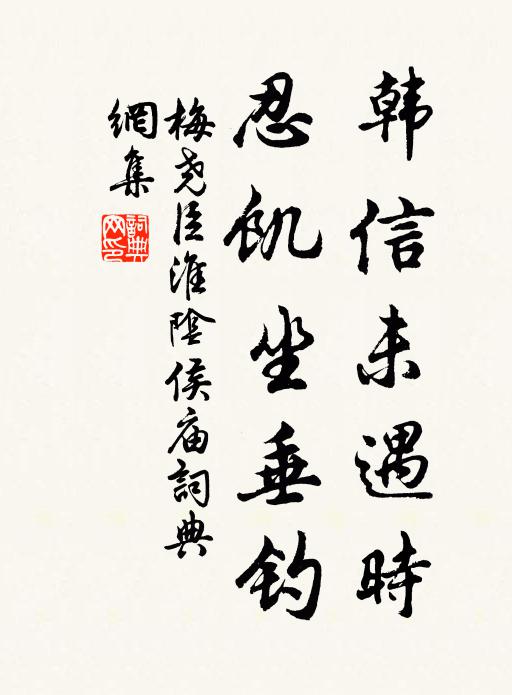 韩信未遇時
忍飢坐垂钓
梅尧臣淮陰侯庙詞典
網集
詞典网印